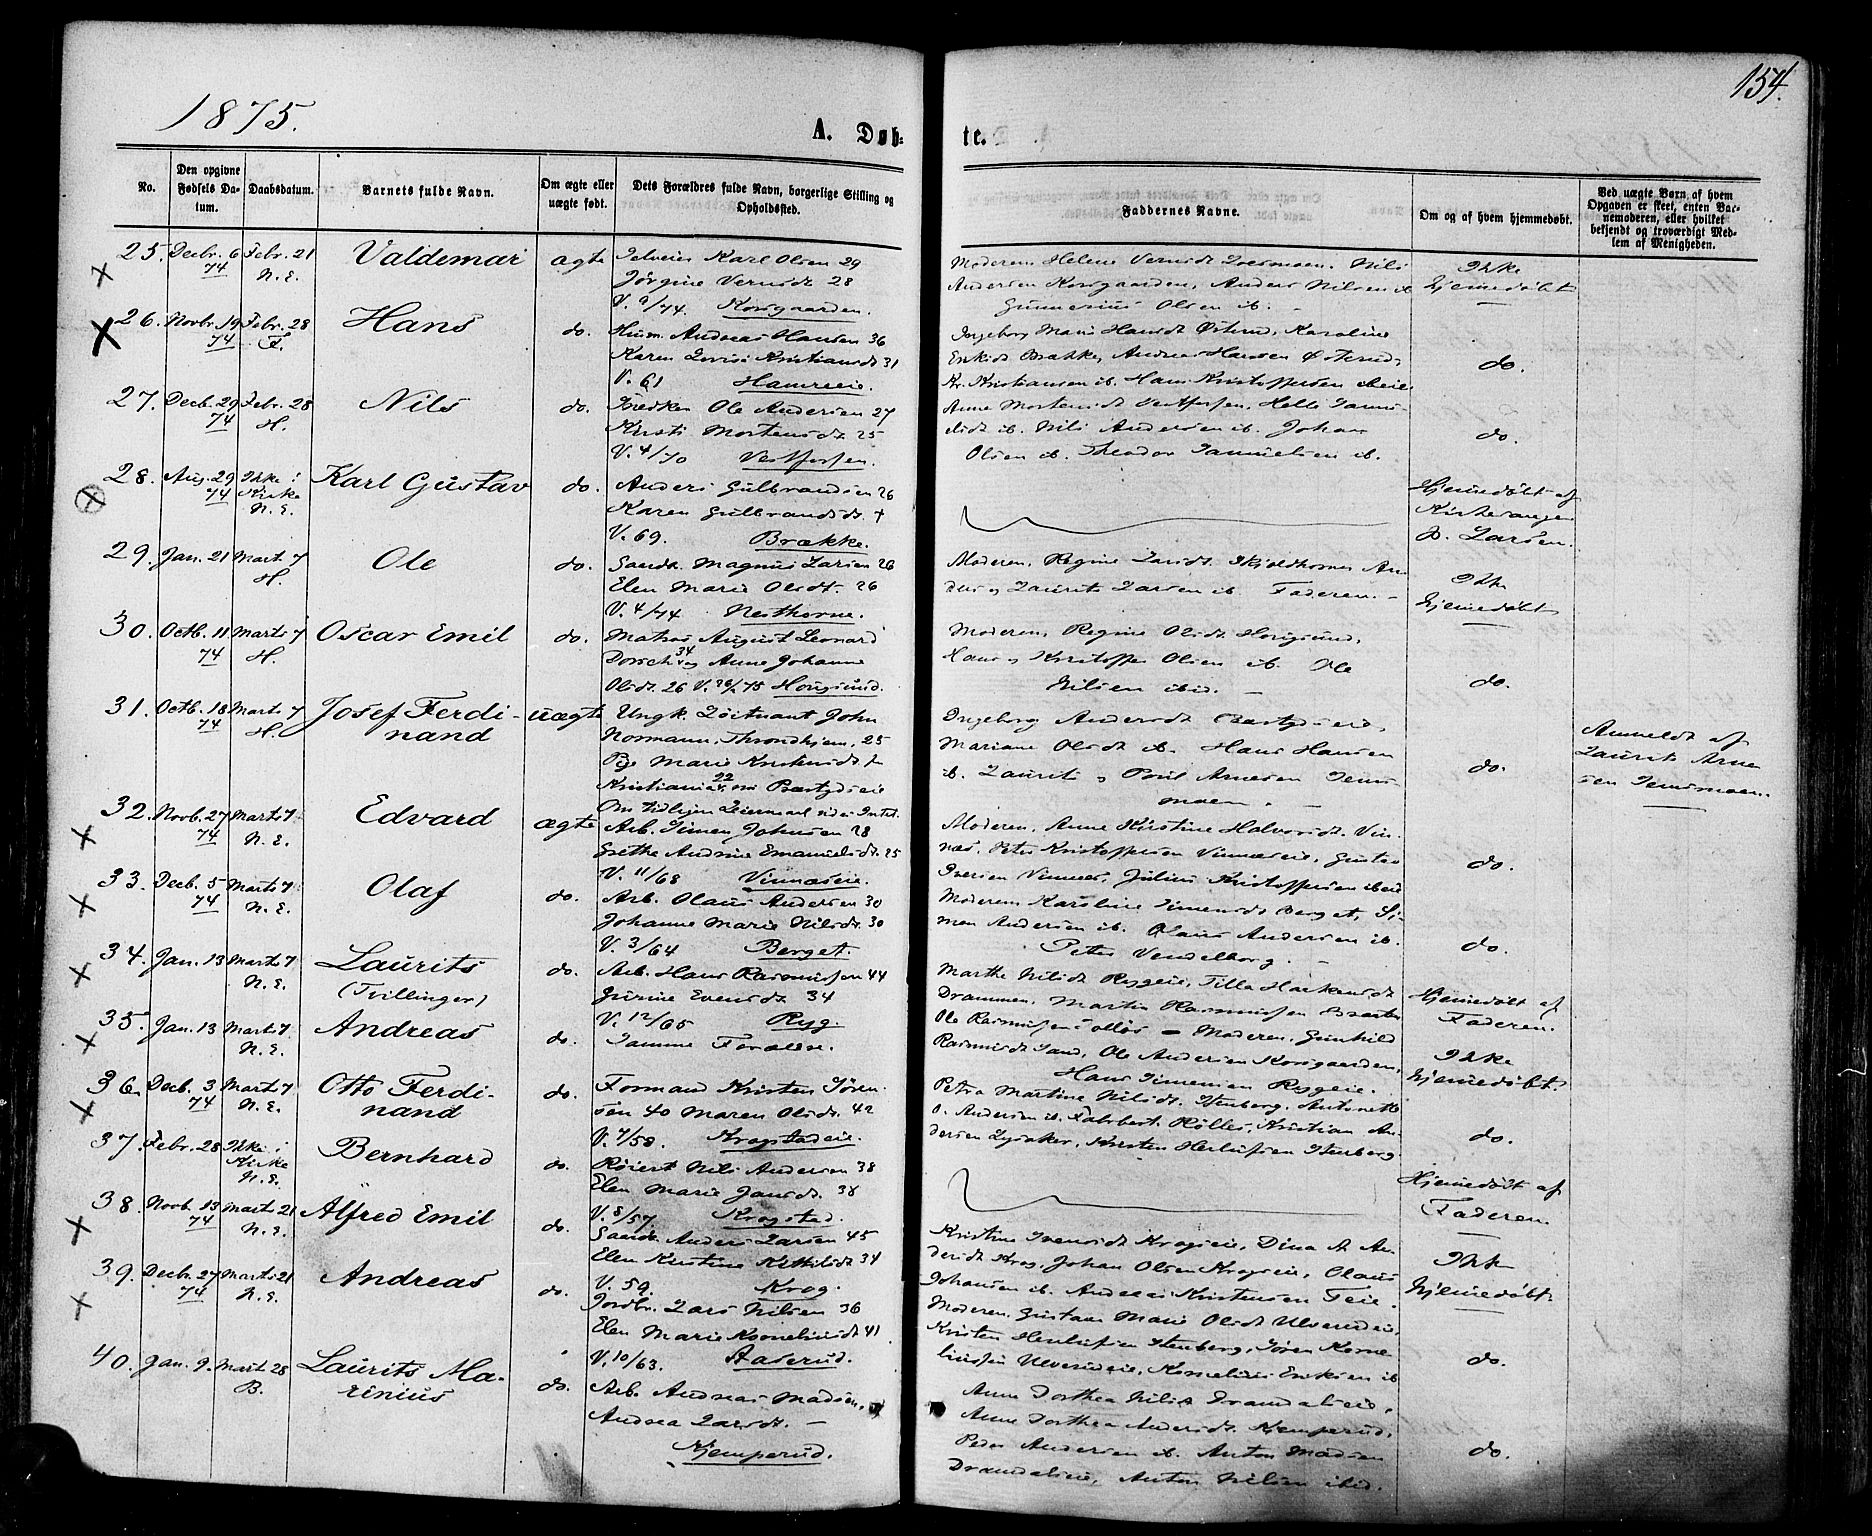 154.
1875.
A. Døb-
te.
No.
Den opgivne Fødsels Da-
tum.
Daabsdatum.
Barnets fulde Navn.
Om ægte eller
uægte født.
Dets Forældres fulde Navn, borgerlige Stilling og
Opholdssted.
Faddernes Navne.
Om og af hvem hjemmedøbt.
Ved uægte Børn af hvem
Opgaven er skeet, enten Bar-
nemoderen, eller hvilket
bekjendt og troværdigt Med-
lem af Menigheden.
25. Decbr. 6 Febr. 21 Valdemar ægte Karl Olsen 29
74 N. E. Jørgine 28
V. 9/74. Korsgaarden.
Moderen, Helene
Andersen Korsgaarden, Anders Nilsen ib
Gunnerius Olsen ib.
Ikke
hjemmedøbt
26. Novbr. 19 Febr. 28 Hans do. Husm. Andreas Hansen 36
74 F. Karen Lovise Kristiansdt 31
V. 61 Hamreeie.
Ingeborg Marie Hansdt Østerud, Karoline
Eriksdt Brække, Andreas Hansen Østerud,
Kr. Kristiansen ib. Hans Kristoffersen
do.
27. Decb. 29 Febr. 28 Nils do. Ole Andersen 27
74 H. Kirsti Mortensdt 25
V. 4/70 Vestfossen.
Anne Mortensdt Vestfossen, Helle
ib. Nils Andersen ib. Johan
Olsen ib. Theodor Samuelsen ib.
do.
28. Aug. 29 Ikke i Karl Gustav do. Anders Gulbrandsen 26
74 Kirke Karen Gulbrandsdt. +
N. E. V. 69. Brække.
Hjemmedøbt af
Kirkesanger
Larsen.
29. Jan. 21 Marts 7 Ole do. Gaardb. Magnus Larsen 26
H. Elen Marie Olsdt. 26
V. 4/74 Nesthorne.
Moderen, Regine Larsdt. Skjoldhorne, An
ders og Laurits Larsen ib. Faderen.
Ikke
hjemmedøbt
30. Octb. 11 Marts 7 Oscar Emil do. Matros August Leonard
74 H. Dorsch 34 og Anne Johanne
Olsdt. 26 V. 26/2 75 Hougsund.
Moderen, Regine Olsdt Hougsund,
Hans og Kristoffer Olsen ib. Ole
Nilsen ibid.
do.
31. Octb. 18 Marts 7 Josef Ferdi- uægte Ungk. Løitnant John
74 H. nand Normann, Throndhjem, 25
Pge Marie Kristensdt fra
Kristiania 22
Om tidligere Leiermaal vides Intet.
Ingeborg Andersdt
Mariane Olsdt ib. Hans Hansen
ib. Laurits og Poul Arnesen
moen.
do.
Anmeldt af
Laurits Arne
sen
32. Novb. 27 Marts 7 Edvard ægte Arb. Simen Johnsen 28
74 N. E. Grethe Andrine Emanuelsdt. 25
V. 11/68 Vinnæseie.
Moderen, Anne Kirstine Halvorsdt. Vin-
næs. Peter Kristoffersen Vinnæseie, Gustav
Iversen Vinnæs, Julius Kristoffersen
do.
33. Decb. 5 Marts 7 Olaf do. Arb. Olaus Andersen 30
74 N. E. Johanne Marie Nilsdt. 30
V. 3/64 Berget.
Moderen Karoline Simensdt Berget, Si-
mon Andersen ib. Olaus Andersen ib.
Peter Vendelborg.
do.
34. Jan. 13 Marts 7 Laurits do. Arb. Hans Rasmussen 44
N. E. (Tvillinger) Gurine Evensdt 34
V. 12/65 Ryg.
Marthe Nilsdt Ryggeie, Tilla Haakensdt
Drammen, Martin Rasmussen
Ole Rasmussen
Hjemmedøbt af
Faderen.
35. Jan. 13 Marts 7 Andreas do. Samme Forældre.
N. E.
Moderen, Gunhild
Rasmusdt Sand, Ole Andersen Korsgaarden,
Hans Simensen Ryggeie.
Ikke
hjemmedøbt
36. Decb. 3 Marts 7 Otto Ferdi- do. Formand Kristen Søren-
74 N. E. nand sen 40 Maren Olsdt. 42
V. 7/58 Krogstadeie.
Petra Martine Nilsdt. Stenberg. Antonette
O. Andersen ib. Fabrbest. Møller, Kristian An-
dersen Lysaker, Kristen Herlufsen Stenberg.
do.
37. Febr. 28 Ikke i Bernhard do. Røiert Nils Andersen 38
Kirke Elen Marie Jansdt. 38
N. E. V. 8/57 Krogstad.
Hjemmedøbt af
Faderen.
38. Novb. 13 Marts 21 Alfred Emil do. Gaardb. Anders Larsen 45
74 N. E. Elen Kirstine Kittilsdt 34
V. 59. Krog.
Kristine Iversdt Krogseie, Dina A. An-
dersdt Krog, Johan Olsen Krogseie, Olaus
Johansen ib. Andreas Kristensen Teie.
Ikke
hjemmedøbt
39. Decbr. 27 Marts 21 Andreas do. Jordbr. Lars Nilsen 36
74 N. E. Elen Marie Korneliusdt 41
V. 10/63. Aaserud.
Moderen, Gustava Marie Olsdt Ulverudeie,
Kristen Herlufsen Stenberg, Søren Korne
liussen Ulverudeie, Kornelius Eriksen ib
do.
40. Jan. 9. Marts 28 Laurits Ma- do. Arb. Andreas Madsen,
B. rinius Andrea Larsdt. —
Kjemperud.
Anne Dorthea Nilsdt Dramdalseie,
Anne Dorthea Andersdt. Kjemperud,
Peder Andersen ib. Anton Madsen
Dramdalseie, Anton Nilsen ibid.
do.